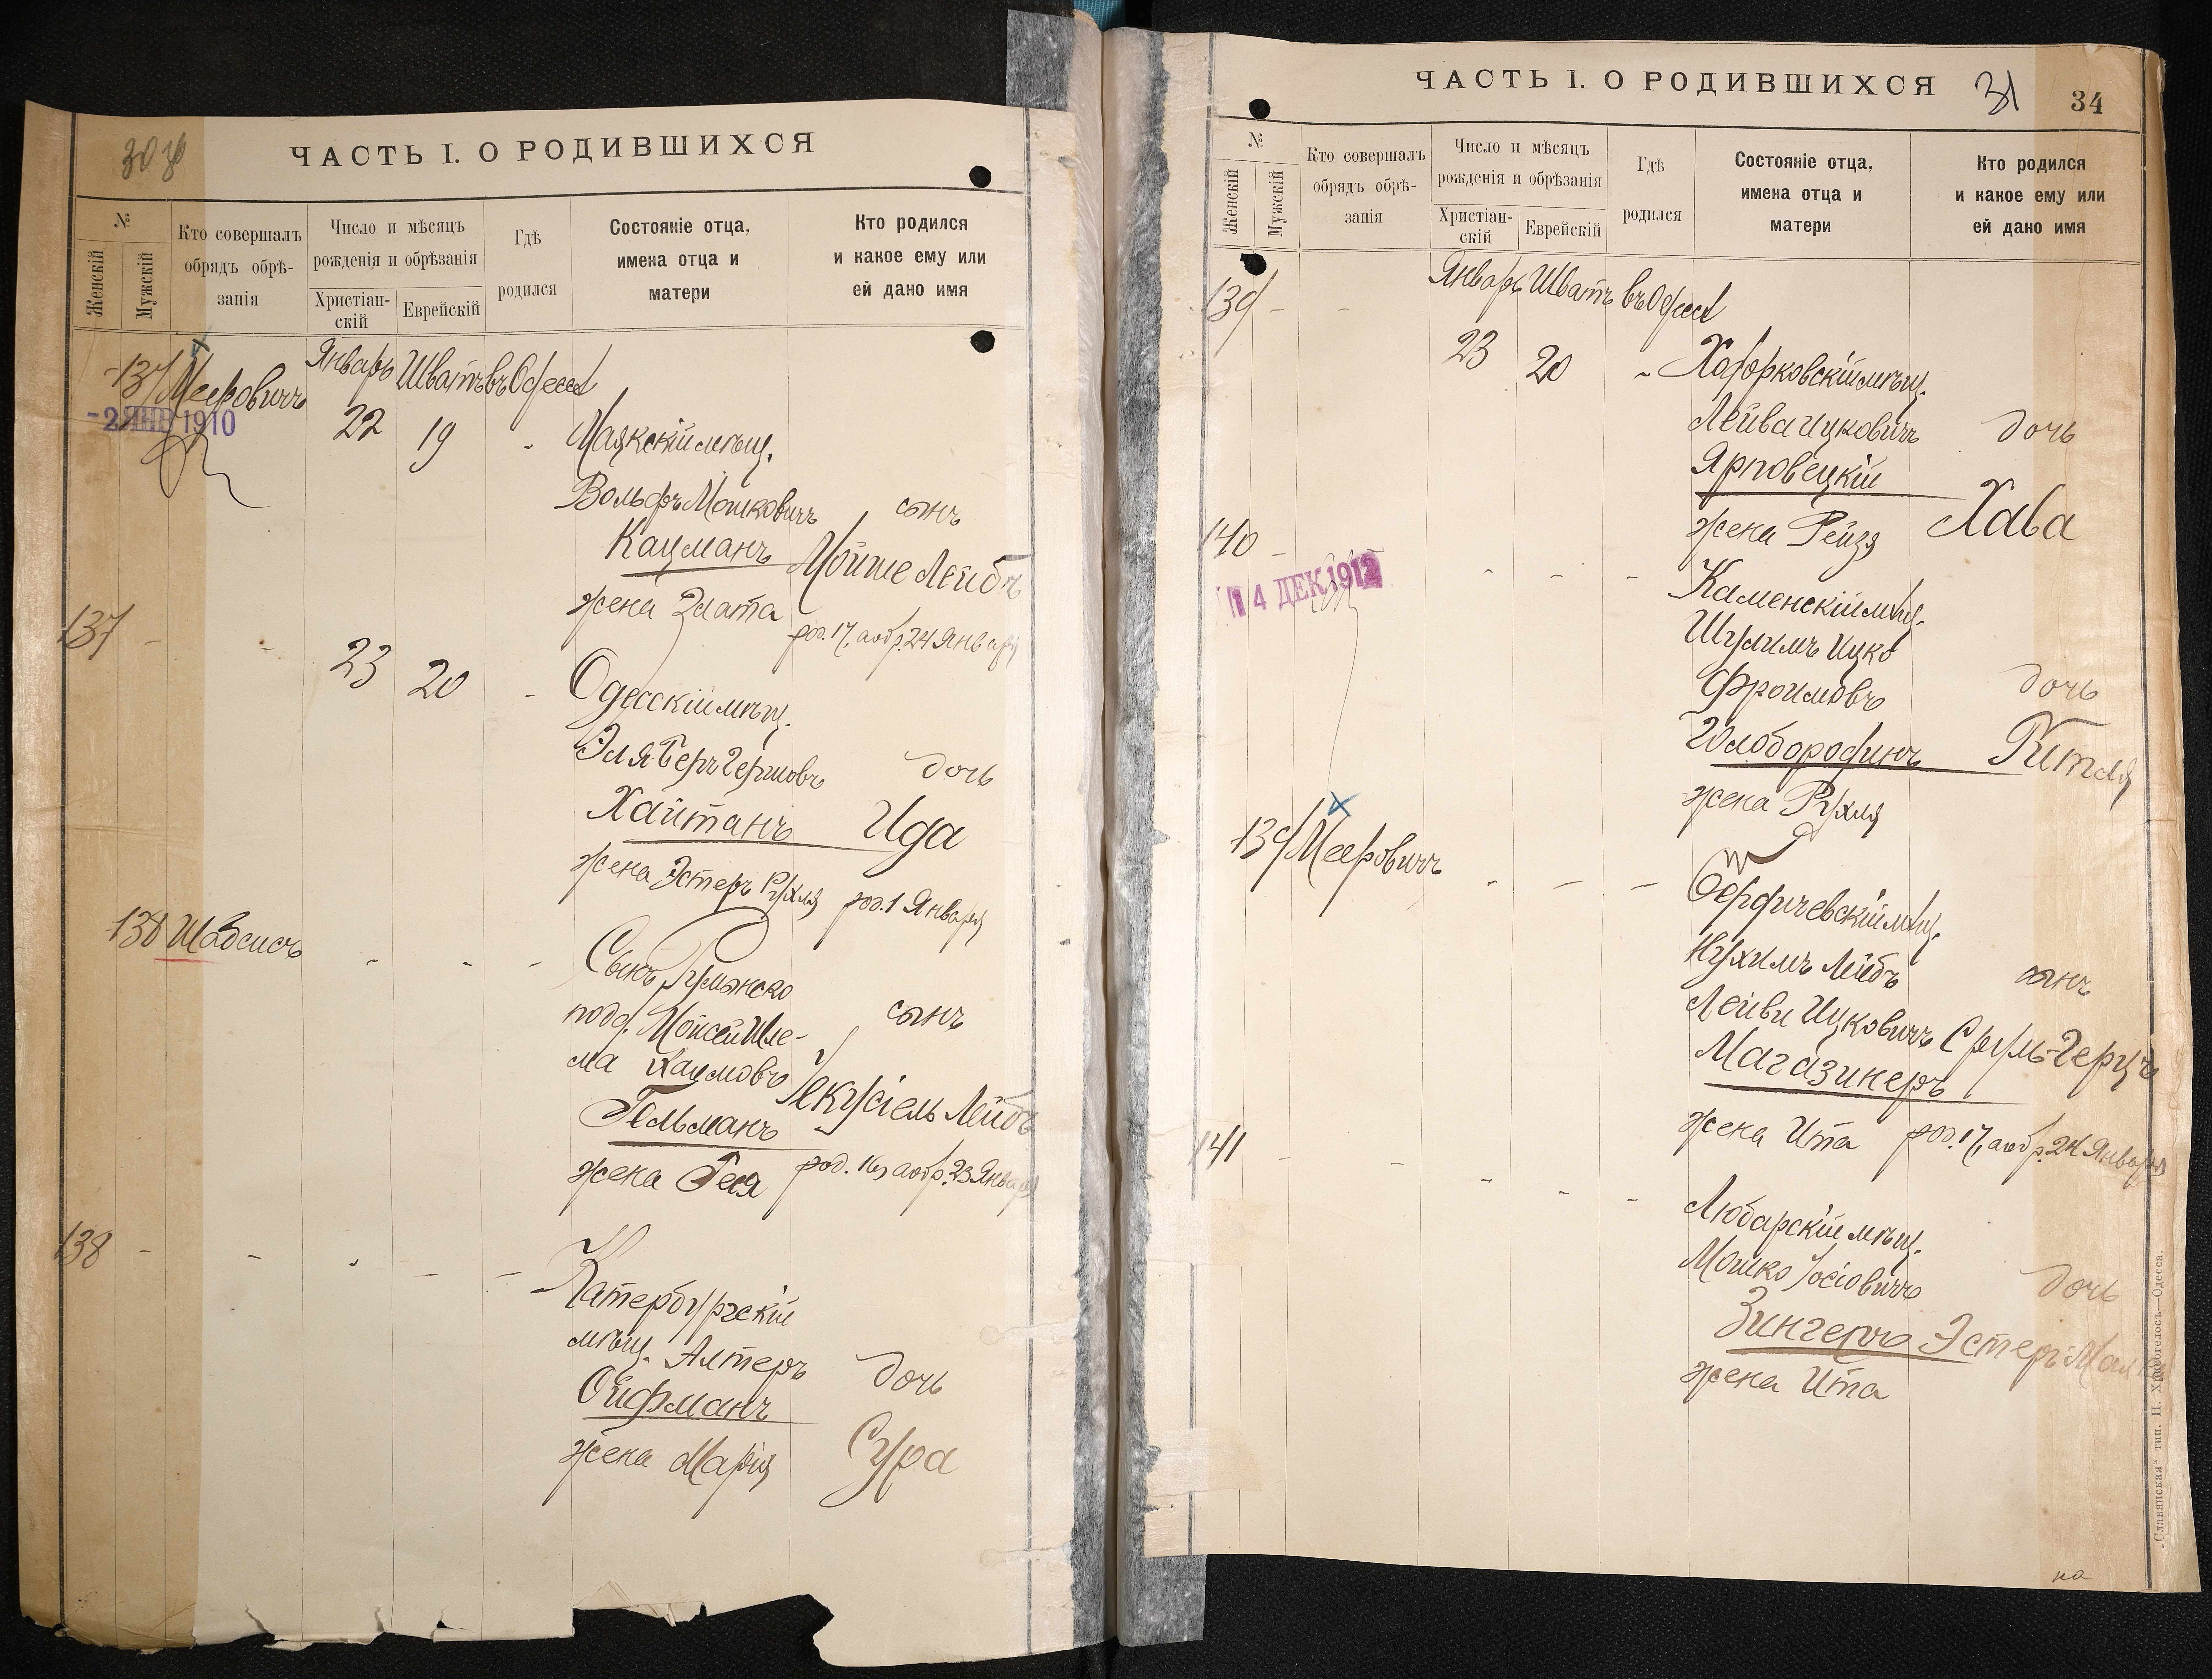 30 об
ЧАСТЬ I. О РОДИВШИХСЯ
№
Женскій
Мужской
Кто совершалъ обрядъ обрѣ-
занія
Число и мѣсяцъ
рожденія и обрѣзанія
Христіан-
скій
Еврейскій
Гдѣ
родился
Состояніе отца,
имена отца и
матери
Кто родился
и какое ему или
ей дано имя
137 Мееровичъ Январь Шватъ въ Одессѣ
-2 ЯНВ 1910
22 19 - Маякскій мѣщ.
Вольфъ Мошковичъ сынъ
Кацманъ Мойше Лейбъ
жена Злата род. 17, а обр. 24 Января
137 - - 23 20 - Одесскій мѣщ.
Эля-Беръ Гершовъ дочь
Хайтанъ Ида
жена Эстеръ Рухля род. 1 Января
138 Шабсисъ - - - Сынъ Румынско
подд. Мойсей Шле- сынъ
ма Хаимовъ Іекусіель Лейбъ
Гельманъ
жена Геся род. 16, а обр. 23 Января
138 - - - - - Катербургскій
мѣщ. Алтеръ дочь
Ойфманъ
жена Марія Сура
ЧАСТЬ I. О РОДИВШИХСЯ 31 34
№
Женскій
Мужскій
Кто совершалъ
обрядъ обрѣ-
занія
Число и мѣсяцъ
рожденія и обрѣзанія
Христіан-
скій
Еврейскій
Гдѣ
родился
Состояніе отца,
имена отца и
матери
Кто родился
и какое ему или
ей дано имя
139 - - Январь Шватъ въ Одессѣ
23 20 - Ходорковскій мѣщ.
Лейва Ицковичъ дочь
Ярповецкій
жена Рейзя Хава
140 - - - - Каменскій мѣщ.
14 ДЕК 1912
Шулимъ Ицко
Фроимовъ дочь
Голобородинъ Гитля
жена Рухля
139 Мееровичъ - - - Бердичевскій мѣщ.
Нухимъ Лейбъ сынъ
Лейви Ицковичъ Сруль-Герцъ
Магазинеръ
жена Ита род. 17, а обр. 24 Января
141 - - - - - Любарскій мѣщ.
Мошко Іосіовичъ дочь
Зингеръ Эстеръ-Мая
жена Ита
„Славянская" тип. Н. Хрисогелосъ—Одесса.
на